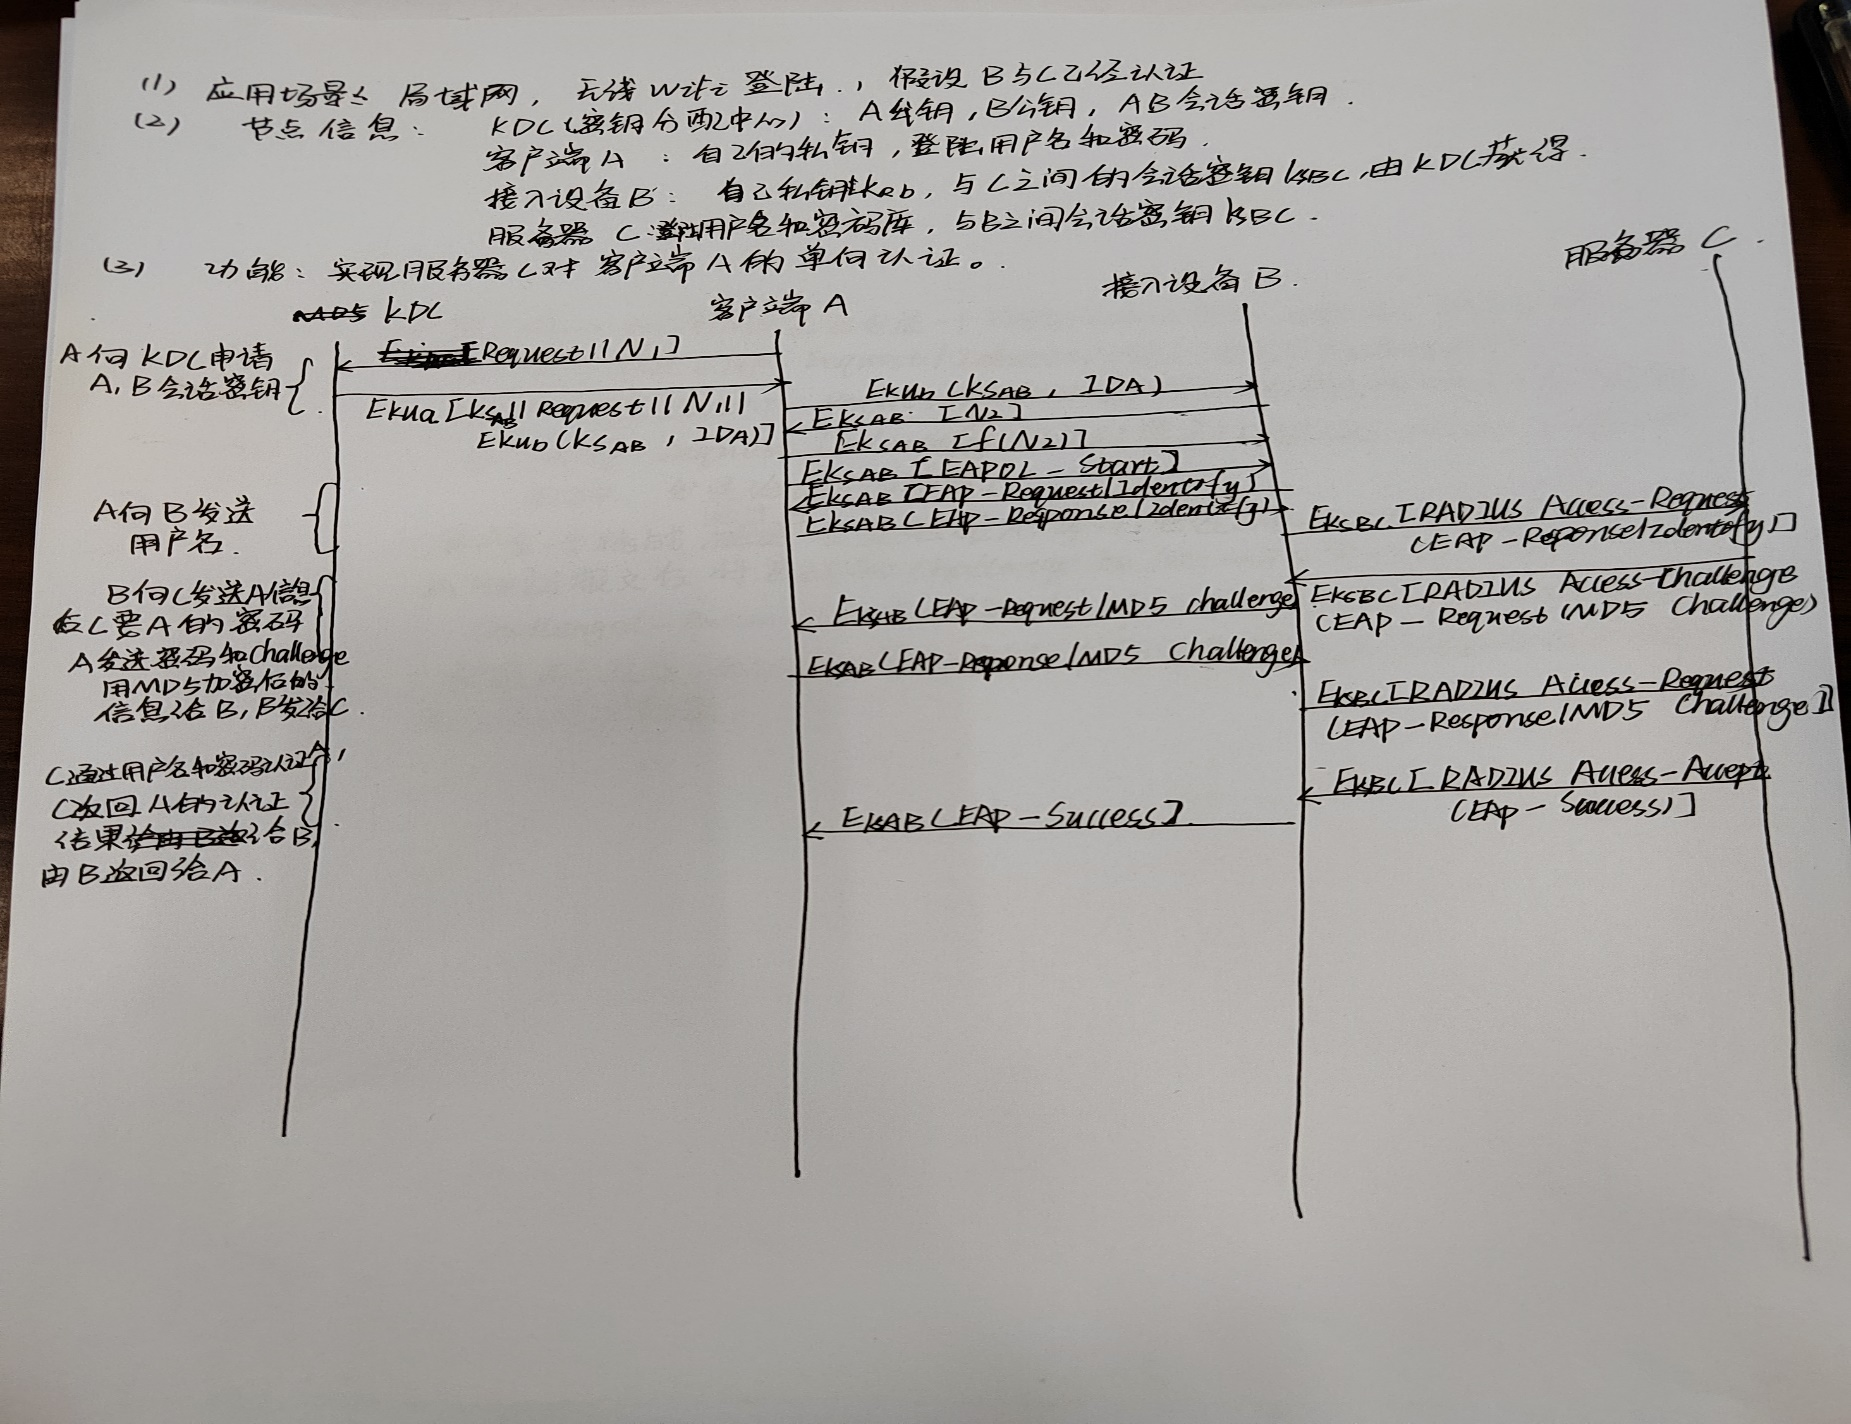 (1) 应用场景: 局域网, 无线wifi登陆, 假设B与C已经认证
(2) 节点信息: KDC(密钥分配中心): A公钥, B公钥, AB会话密钥.
客户端A: 自己的私钥, 登陆用户名和密码.
接入设备B: 自己私钥kRb, 与C之间的会话密钥ksBC, 由KDC获得.
服务器C: 登陆用户名和密码库, 与B之间会话密钥ksBC.
(3) 功能: 实现服务器C对客户端A的单向认证。
KDC 客户端A 接入设备B. 服务器C.
A向KDC申请
A, B会话密钥
Request||N1]
Ekua[ksAB||Request||N1||
Ekub(ksAB, IDA)]
Ekub(ksAB, IDA)
EksAB[N2]
EksAB[f(N2)]
EksAB[EAPOL-Start]
EksAB[EAP-Request/Identify]
EksAB(EAP-Response/Identify)
A向B发送
用户名.
EksBC[RADIUS Access-Request
(EAP-Reponse/Identofy)]
B向C发送A信息
后C要A的密码
A发送密码和challenge
用MD5加密后的
信息给B, B发给C.
EksBC[RADIUS Access-Challenge
(EAP-Request/MD5 Challenge)
EksAB(EAP-Request/MD5 challenge
EksAB(EAP-Reponse/MD5 Challenge)
EksBC[RADIUS Access-Request
(EAP-Response/MD5 Challenge)]
C通过用户名和密码认证A,
C返回A的认证
结果给B,
由B返回给A.
EksBC[RADIUS Access-Accept
(EAP-Success)]
EksAB(EAP-Success]